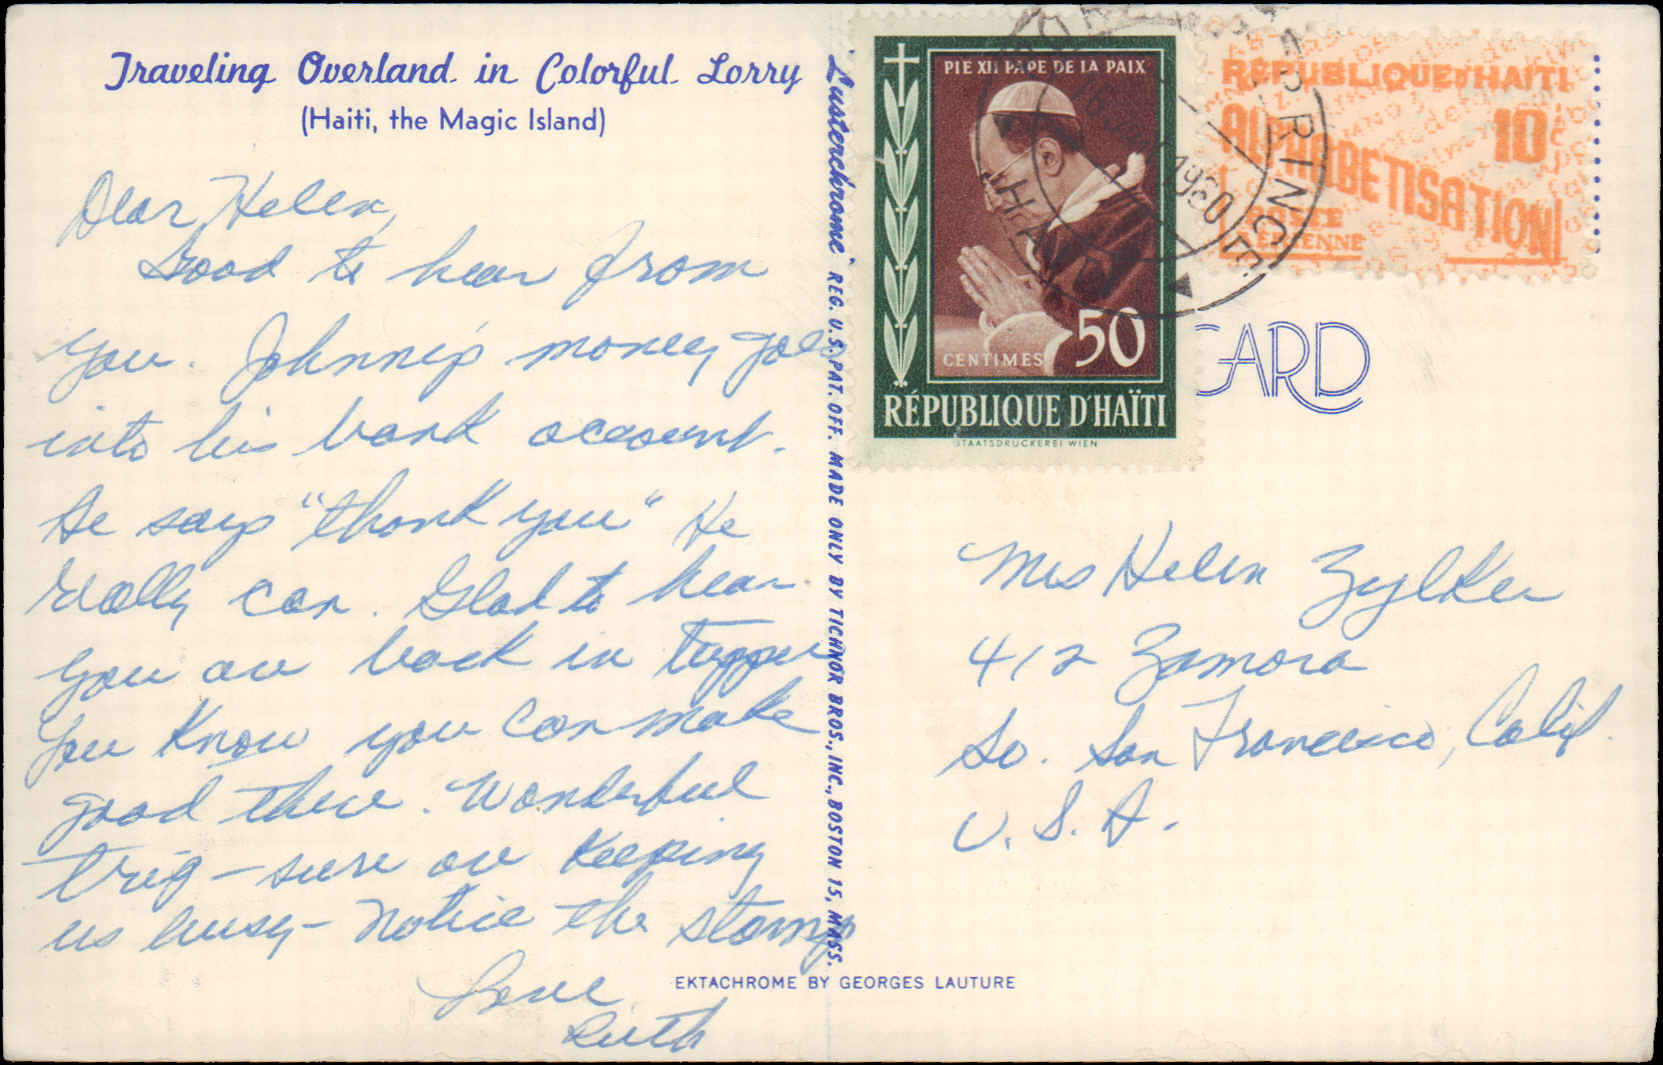 Traveling Overland in Colorful Lorry
(Haiti, the Magic Island)
Dear Helen,
Good to hear from
you. Johnnie's money goes
into his bank account.
He says "thank you" He
really can. Glad to hear
you are back in Tupper
You know you can make
good there. Wonderful
trip - sure are keeping
us busy - Notice the stamps
Love
Ruth
"Lusterchrome" REG. U.S. PAT. OFF. MADE ONLY BY TICHNOR BROS., INC., BOSTON 15, MASS.
EKTACHROME BY GEORGES LAUTURE
PIE XII PAPE DE LA PAIX
50
CENTIMES
RÉPUBLIQUE D'HAÏTI
STAATSDRUCKEREI WIEN
REPUBLIQUE D'HAITI
10
ALPHABETISATION
POSTE
AERIENNE
PRINCE
1960
HAITI
CARD
Mrs Helen Zylker
412 Zamora
So. San Francisco, Calif.
U.S.A.